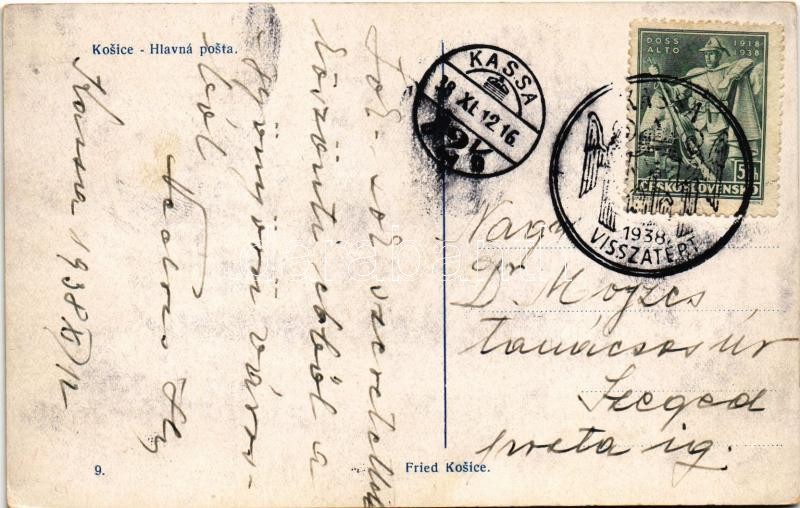 Košice - Hlavná pošta.
Kassa 1938 XI/12
Sok-sok szeretettel
köszönti ebből a
gyönyörű város-
ból
KASSA
38 XI. 12. 16.
DOSS ALTO
1918
1938
ČESKOSLOVENSKO
KASSA
1938.
VISSZATÉRT
Nagys.
Dr Mózes
tanácsos úr
Szeged
posta ig.
9.
Fried Košice.